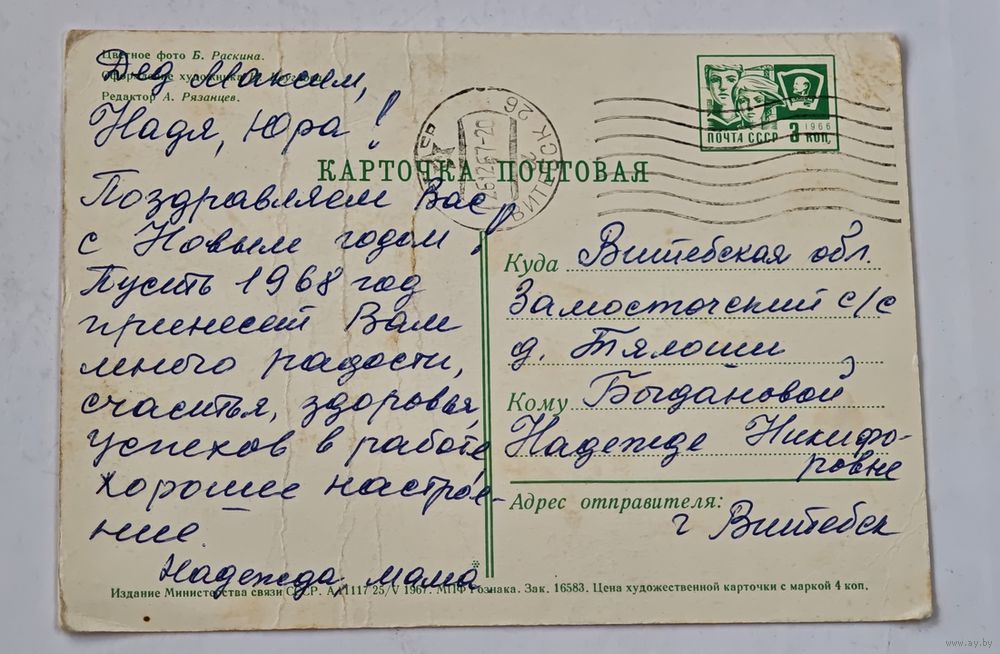 Цветное фото Б. Раскина.
Оформление художника
Редактор А. Рязанцев.
Дед Максим,
Надя, Юра!
Поздравляем Вас
с Новым годом!
Пусть 1968 год
принесет Вам
много радости,
счастья, здоровья,
успехов в работе
хорошее настрое-
ние.
Надежда, мама
КАРТОЧКА ПОЧТОВАЯ
ПОЧТА СССР
1966
3 коп.
ВИТЕБСК 26
261267-20
Куда Витебская обл.
Замосточский с/с
д. Тялоши
Кому Быдановой
Надежде Никифо-
ровне
Адрес отправителя:
г Витебск
Издание Министерства связи СССР. 25/V 1967. МПФ Гознака. Зак. 16583. Цена художественной карточки с маркой 4 коп.
www.ay.by